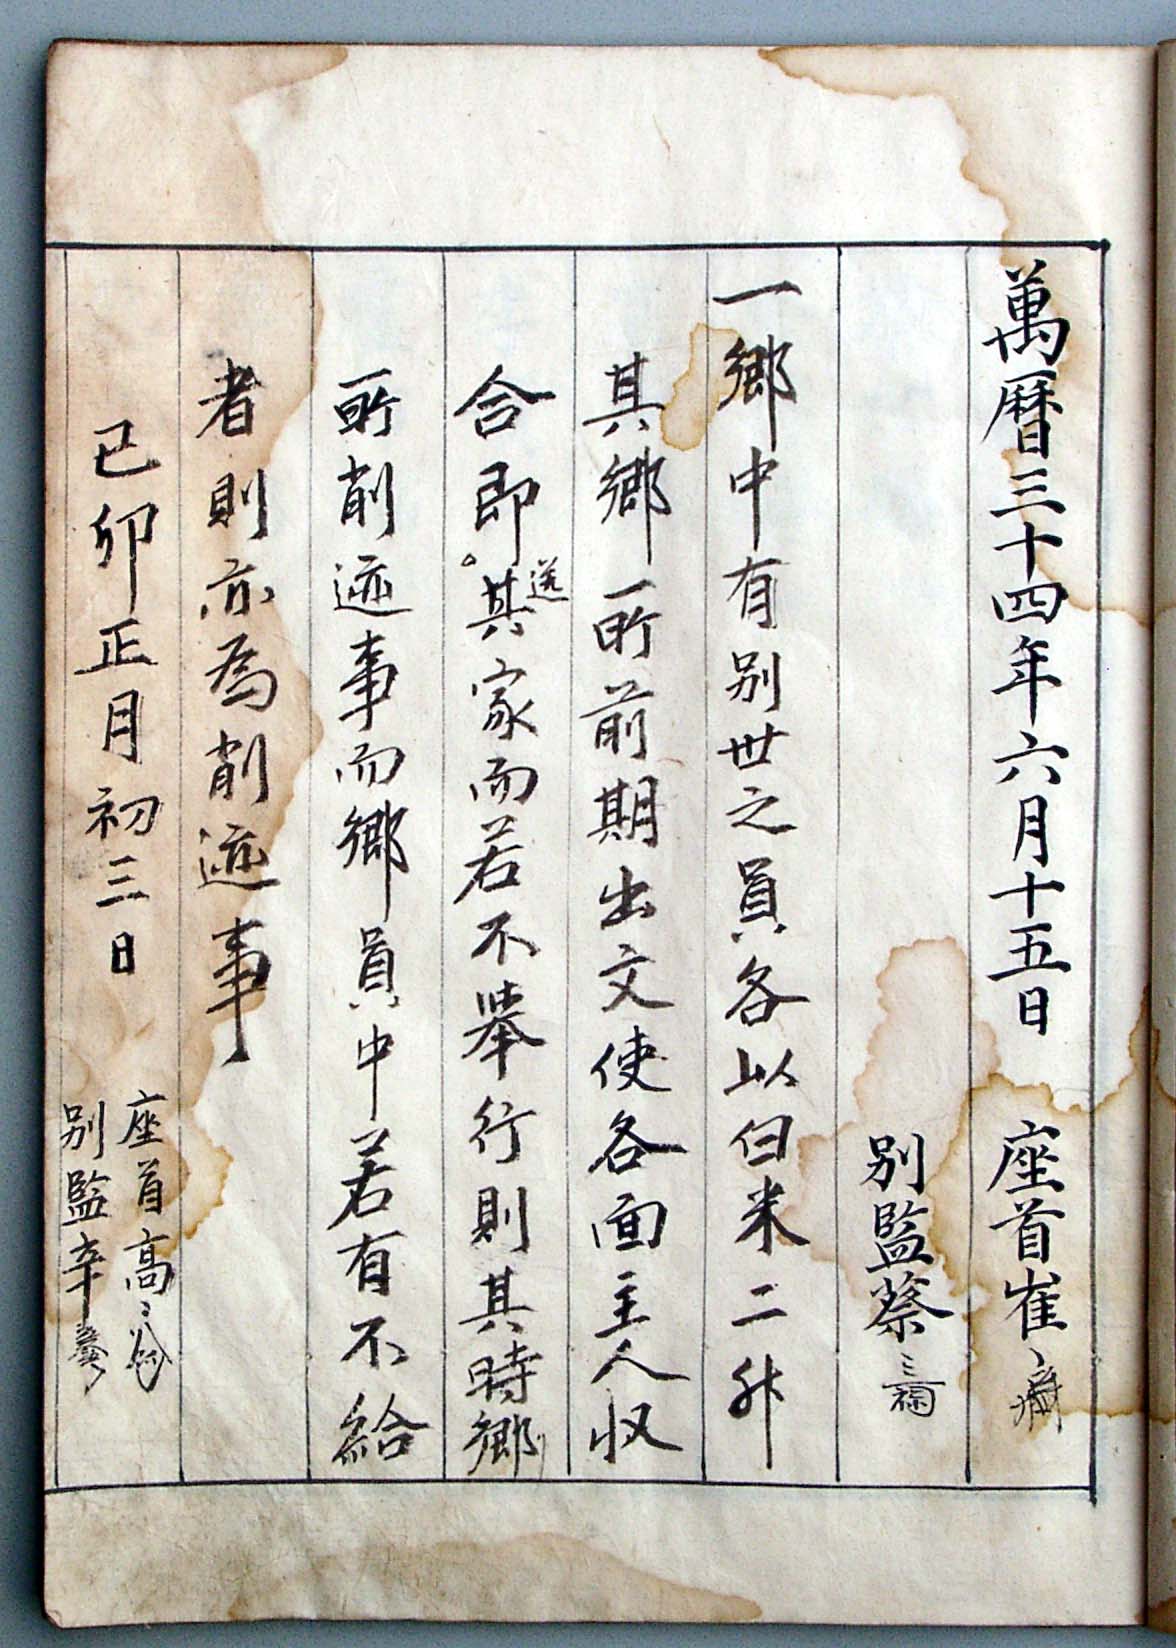 萬曆三十四年六月十五日 座首崔
別監蔡
一鄉中有別世之員各以白米二升
其鄉所前期出文使各面主人収
合即送其家而若不擧行則其時鄉
所削迹事而鄉員中若有不給
者則亦為削迹事
己卯正月初三日 座首高
別監辛